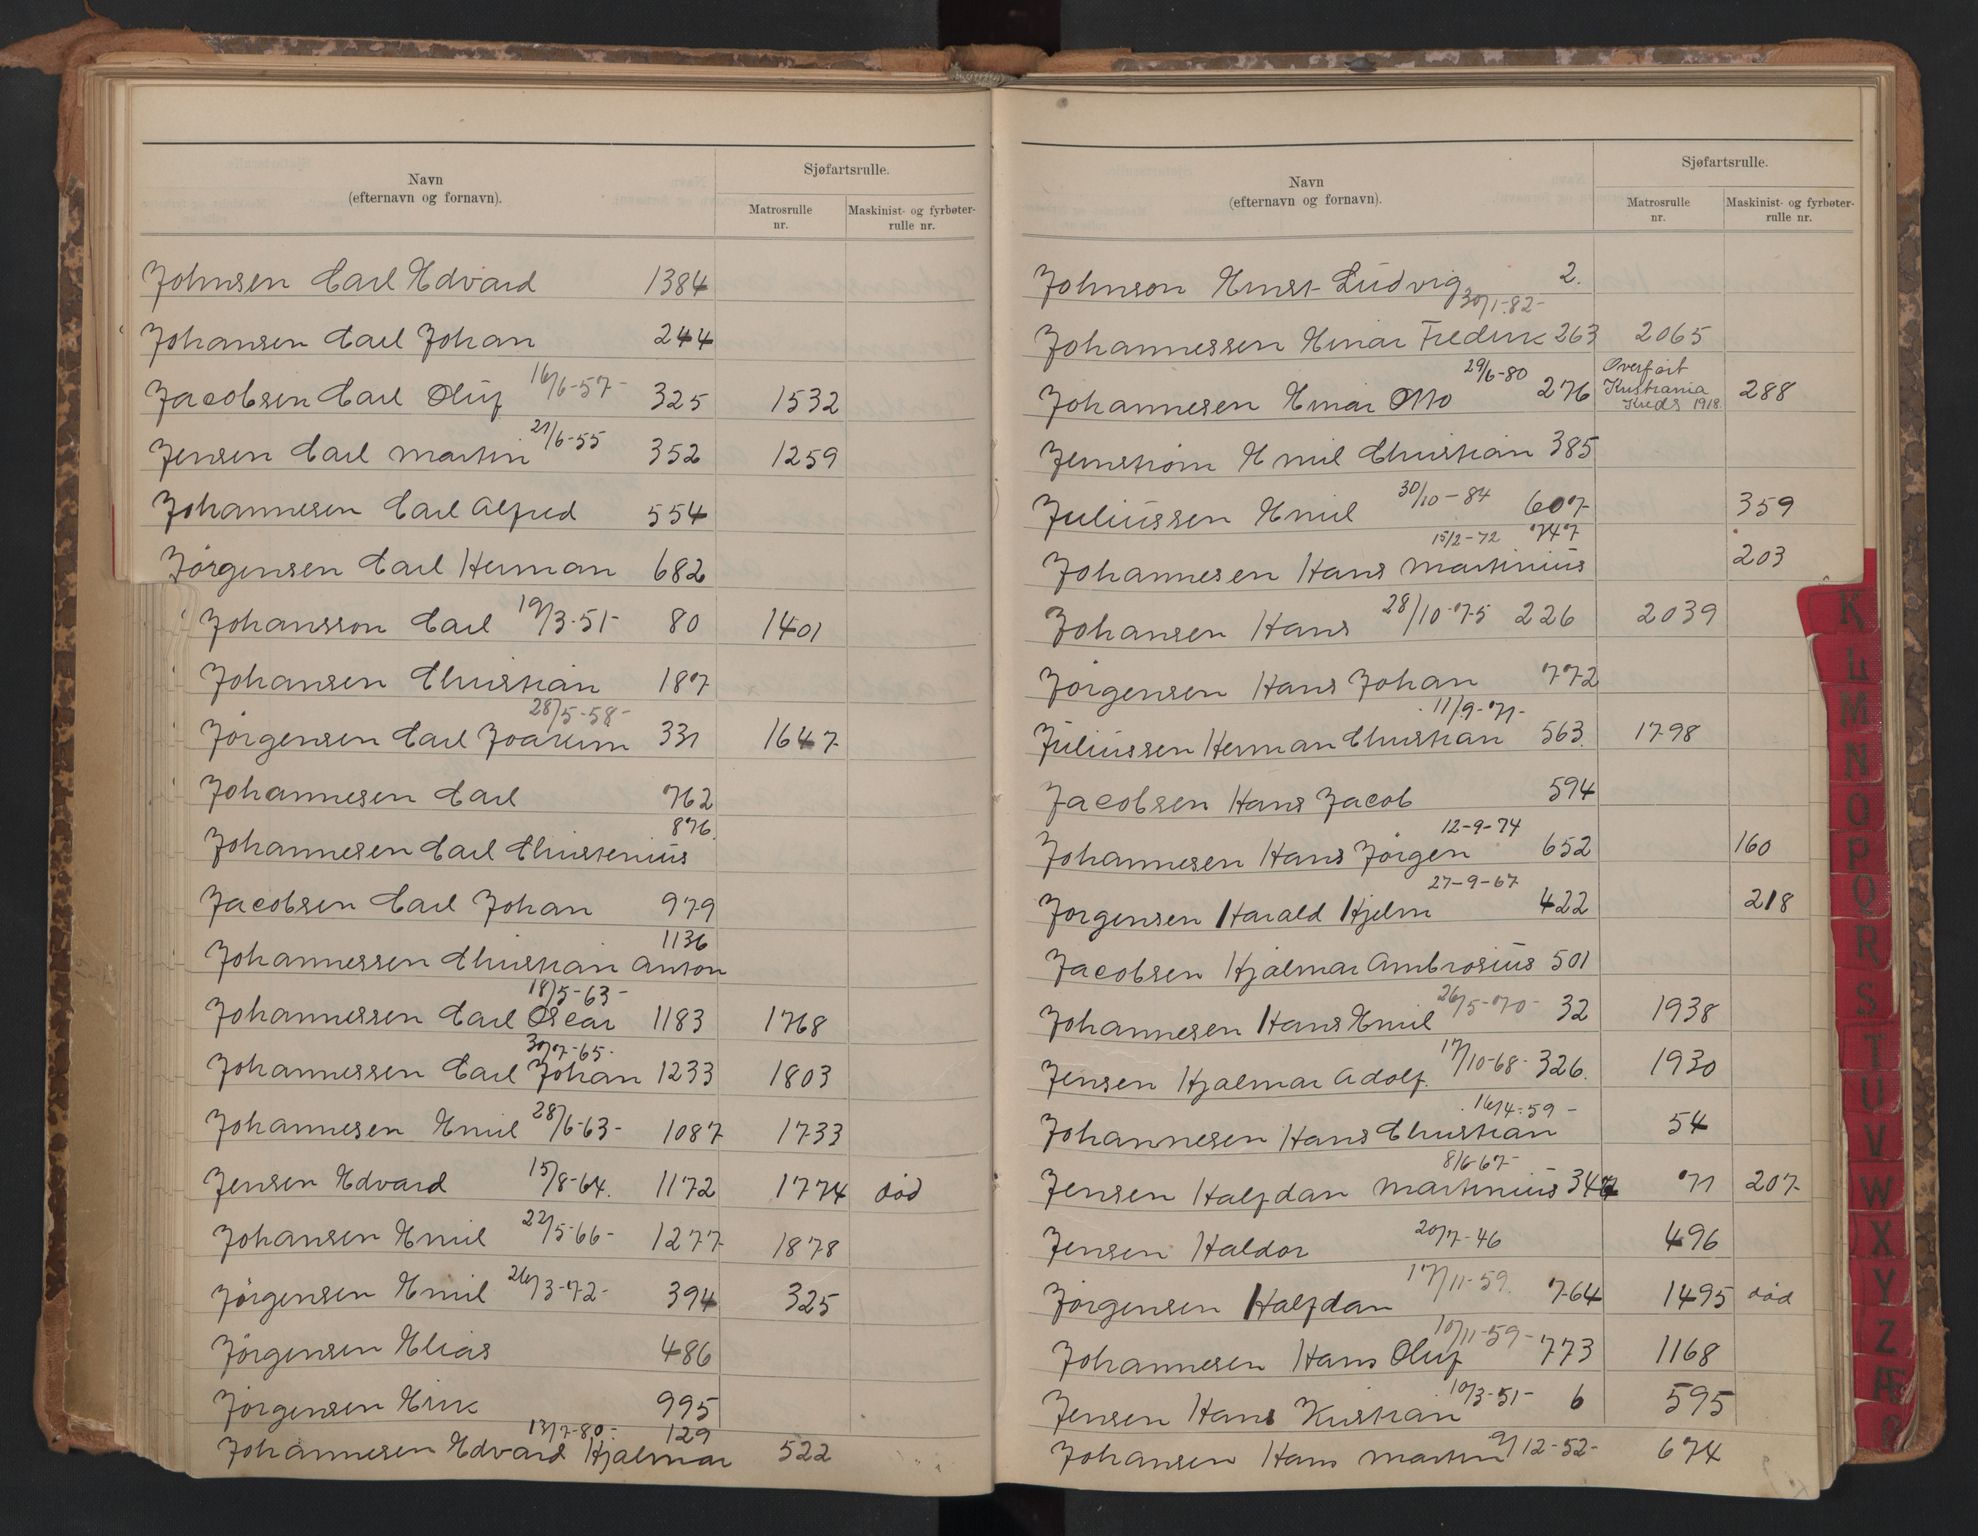 Navn
(efternavn og fornavn).
Sjøfartsrulle.
Matrosrulle
nr.
Maskinist- og fyrbøter-
rulle nr.
Johnsen Carl Edvard 1384
Johansen Carl Johan 244
Jacobsen Carl Oluf 16/6-57- 325 1532
Jensen Carl Martin 21/6-55 352 1259
Johannesen Carl Alfred 554
Jørgensen Carl Herman 682
Johansson Carl 19/3-51- 80 1401
Johansen Christian 187
28/5-58-
Jørgensen Carl Joakim 331 1647
Johannesen Carl 762
876.
Johannesen Carl Christenius
Jacobsen Carl Johan 979
1136
Johannessen Christian Anton
18/5-63-
Johannessen Carl Oscar 1183 1768
30/7-65-
Johannessen Carl Johan 1233 1803
Johannesen Emil 28/6-63- 1087 1733
Jensen Edvard 15/8-64. 1172 1774 død
Johansen Emil 22/5-66- 1277 1878
Jørgensen Emil 26/3-72- 394 325
Jørgensen Elias 486
Jørgensen Erik 995
13/7-80- 129
Johannesen Edvard Hjalmar 522
Navn
(efternavn og fornavn).
Sjøfartsrulle.
Matrosrulle
nr.
Maskinist- og fyrbøter-
rulle nr.
Johnson Ernst Ludvig 2.
30/1-82-
Johannessen Einar Fredrik 263 2065
29/6-80 Overført
Johannesen Einar Otto 276 Kristiania 288
Kreds 1918.
Jernstrøm Emil Christian 385
Juliussen Emil 30/10-84 607 359
15/2-72 747
Johannesen Hans Martinius 203
Johansen Hans 28/10-75 226 2039
Jørgensen Hans Johan 772
11/9-71-
Juliussen Herman Christian 563. 1798
Jacobsen Hans Jacob 594
12-9-74
Johannesen Hans Jørgen 652 160
27-9-67
Jørgensen Harald Hjelm 422 218
Jacobsen Hjalmar Ambrosius 501
Johannesen Hans Emil 26/5-70- 32 1938
Jensen Hjalmar Adolf. 17/10-68- 326. 1930
16/4-59-
Johannesen Hans Christian 54
8/6-67-
Jensen Halfdan Martinius 347 71 207
Jensen Haldor 20/7-46 496
Jørgensen Halfdan 17/11-59. 764 1495 død
Johannesen Hans Oluf 10/11-59- 773 1168
Jensen Hans Kristian 10/3-51- 6 595
Johansen Hans Martin 9/12-52- 674
K
L
M
N
O
P
Q
R
S
T
U
V
W
X
Y
Z
Æ
Ø